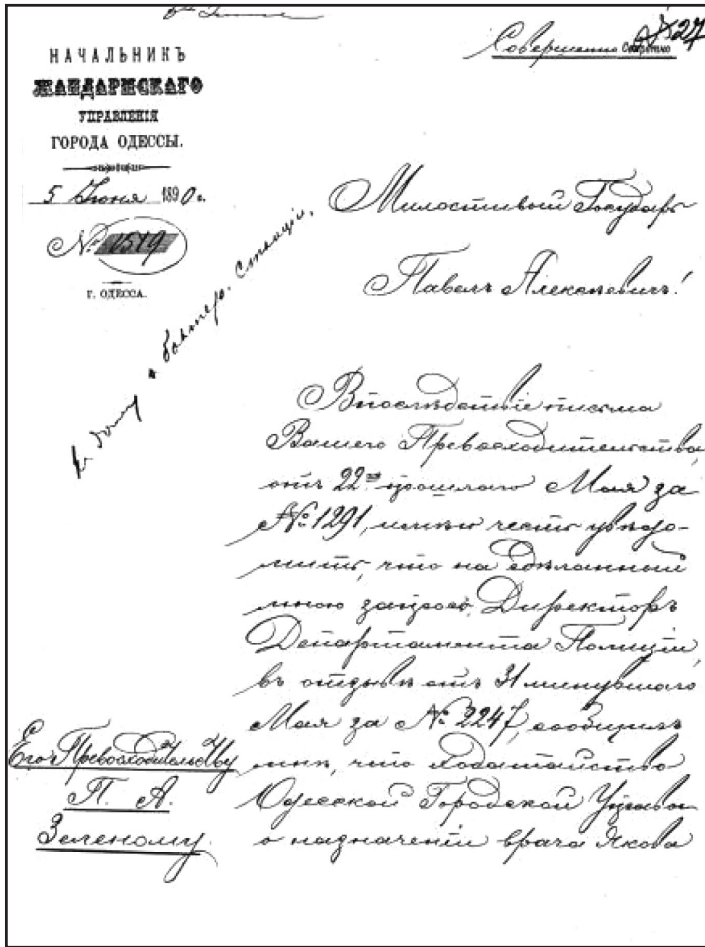 Совершенно Секретно
27
НАЧАЛЬНИКЪ
ЖАНДАРМСКАГО
УПРАВЛЕНІЯ
ГОРОДА ОДЕССЫ.
5 Іюня 1890 г.
№ 1519
г. ОДЕССА.
Милостивый Государь
Павелъ Алексѣевичъ!
бактер. станціи.
Впослѣдствіе письма
Вашего Превосходительства,
отъ 22го прошлаго Мая за
№ 1291, имѣю честь увѣдо-
мить, что на сдѣланный
мною запросъ, Директоръ
Департамента Полиціи,
въ отзывѣ отъ 31 минувшаго
Мая за № 2247, сообщилъ
мнѣ, что ходатайство
Одесской Городской Управы
о назначеніи врача Якова
Его Превосходительству
П. А.
Зеленому.